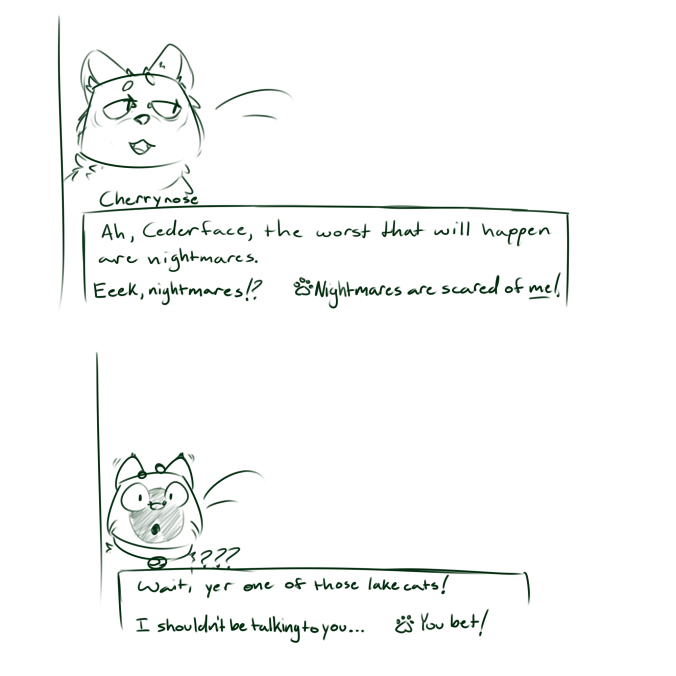 Cherrynose
Ah, Cederface, the worst that will happen
are nightmares.
Eeek, nightmares!? Nightmares are scared of me!
???
Wait, yer one of those lake cats!
I shouldn't be talking to you... You bet!